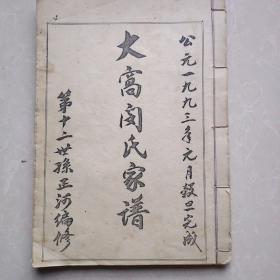 公元一九九三年元月毂旦完成
大窝闵氏家谱
第十二世孙正河编修